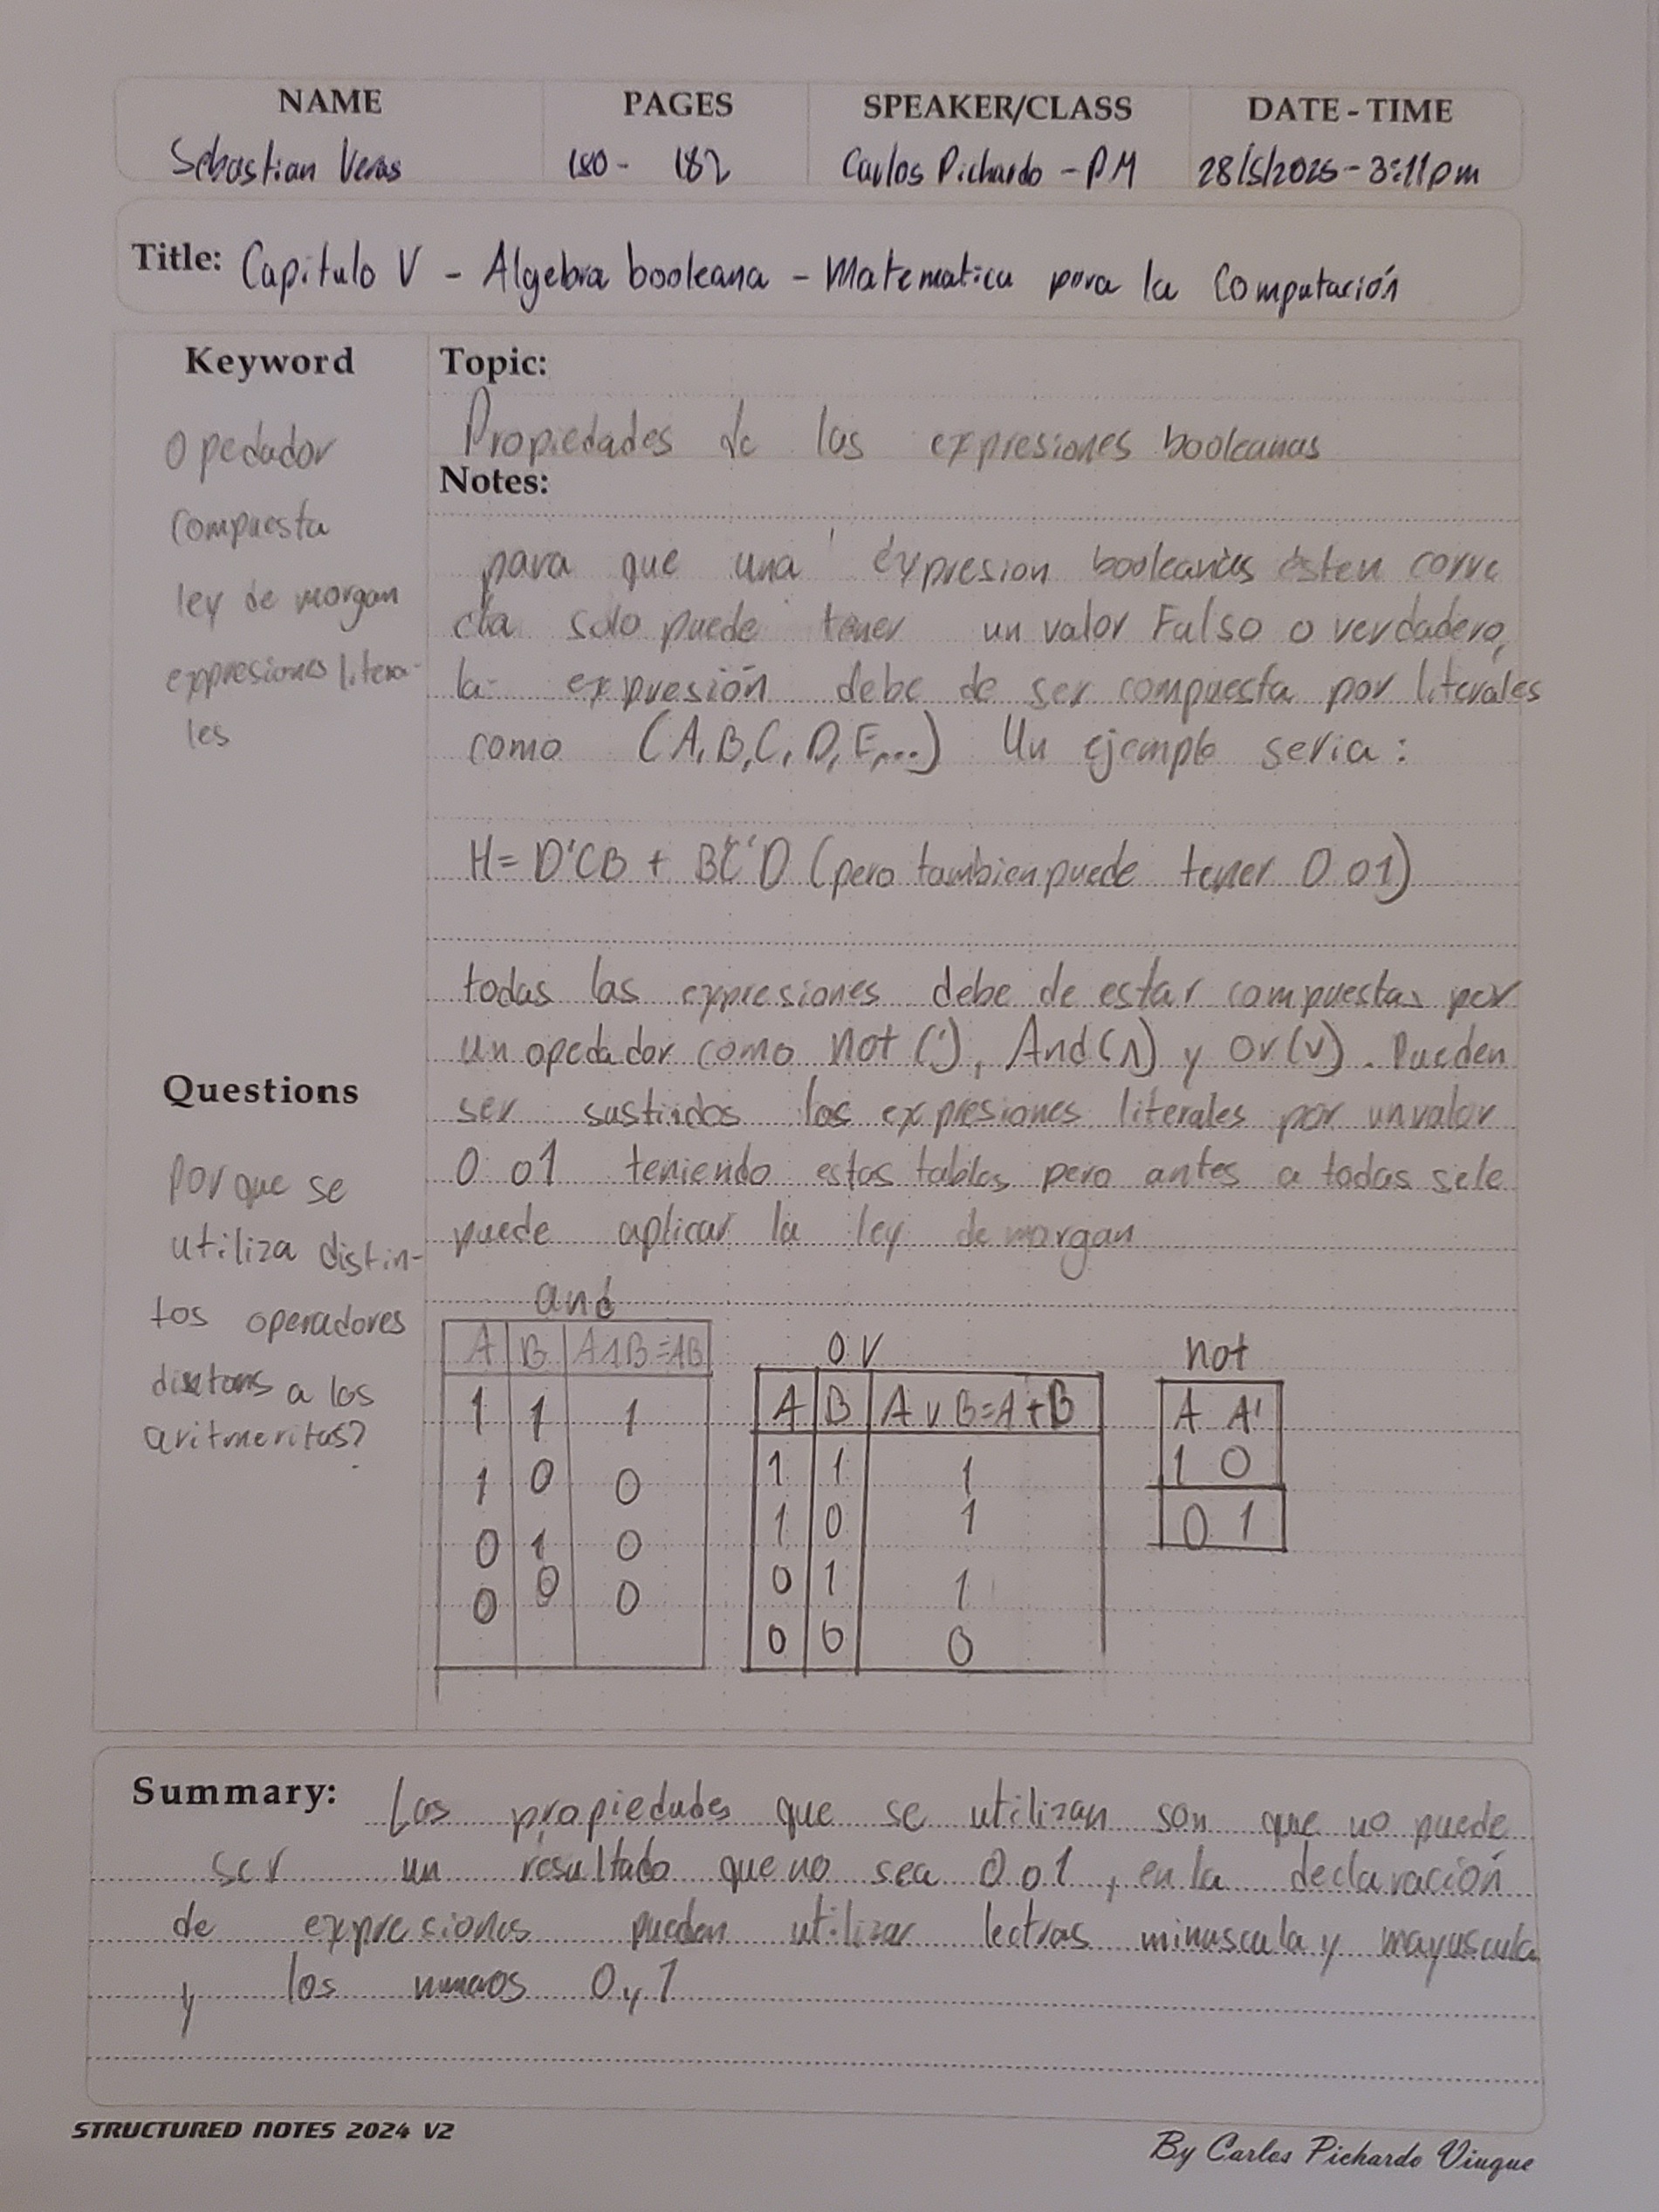 NAME PAGES SPEAKER/CLASS DATE - TIME
Sebastian Veras 180 - 182 Carlos Pichardo - PM 28/5/2025 - 3:11pm
Title: Capitulo V - Algebra booleana - Matematica para la Computación
Keyword
Opedador
compuesta
ley de morgan
expresiones litera-
les
Topic:
Propiedades de las expresiones booleanas
Notes:
para que una expresion booleanas esten corre
cta solo puede tener un valor Falso o verdadero,
la expresión debe de ser compuesta por literales
como (A, B, C, D, E,...) Un ejemplo seria:
H= D'CB + BC'D (pero tambien puede tener 0 o 1)
todas las expresiones debe de estar compuestas por
un opedador como Not ('), And (∧) y Or (∨). Pueden
ser sustiidos las expresiones literales por un valor
0 o 1 teniendo estas tablas pero antes a todas se le
puede aplicar la ley de morgan
Questions
Por que se
utiliza distin-
tos operadores
a los
aritmeritas?
and
A B A∧B=AB
1 1 1
1 0 0
0 1 0
0 0 0
or
A B A∨B=A+B
1 1 1
1 0 1
0 1 1
0 0 0
not
A A'
1 0
0 1
Summary: Las propiedades que se utilizan son que no puede
ser un resultado que no sea 0 o 1, en la declaración
de expresiones pueden utilizar lectras minuscula y mayuscula
y los numaos 0 y 1
STRUCTURED NOTES 2024 V2
By Carlos Pichardo Viuque